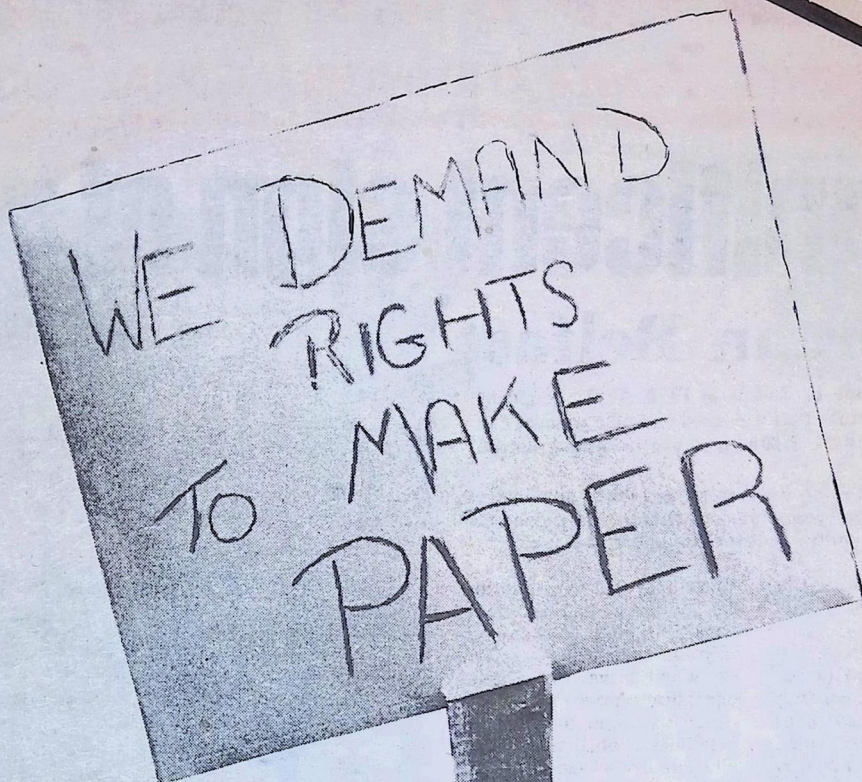 WE DEMAND
RIGHTS
TO MAKE
PAPER